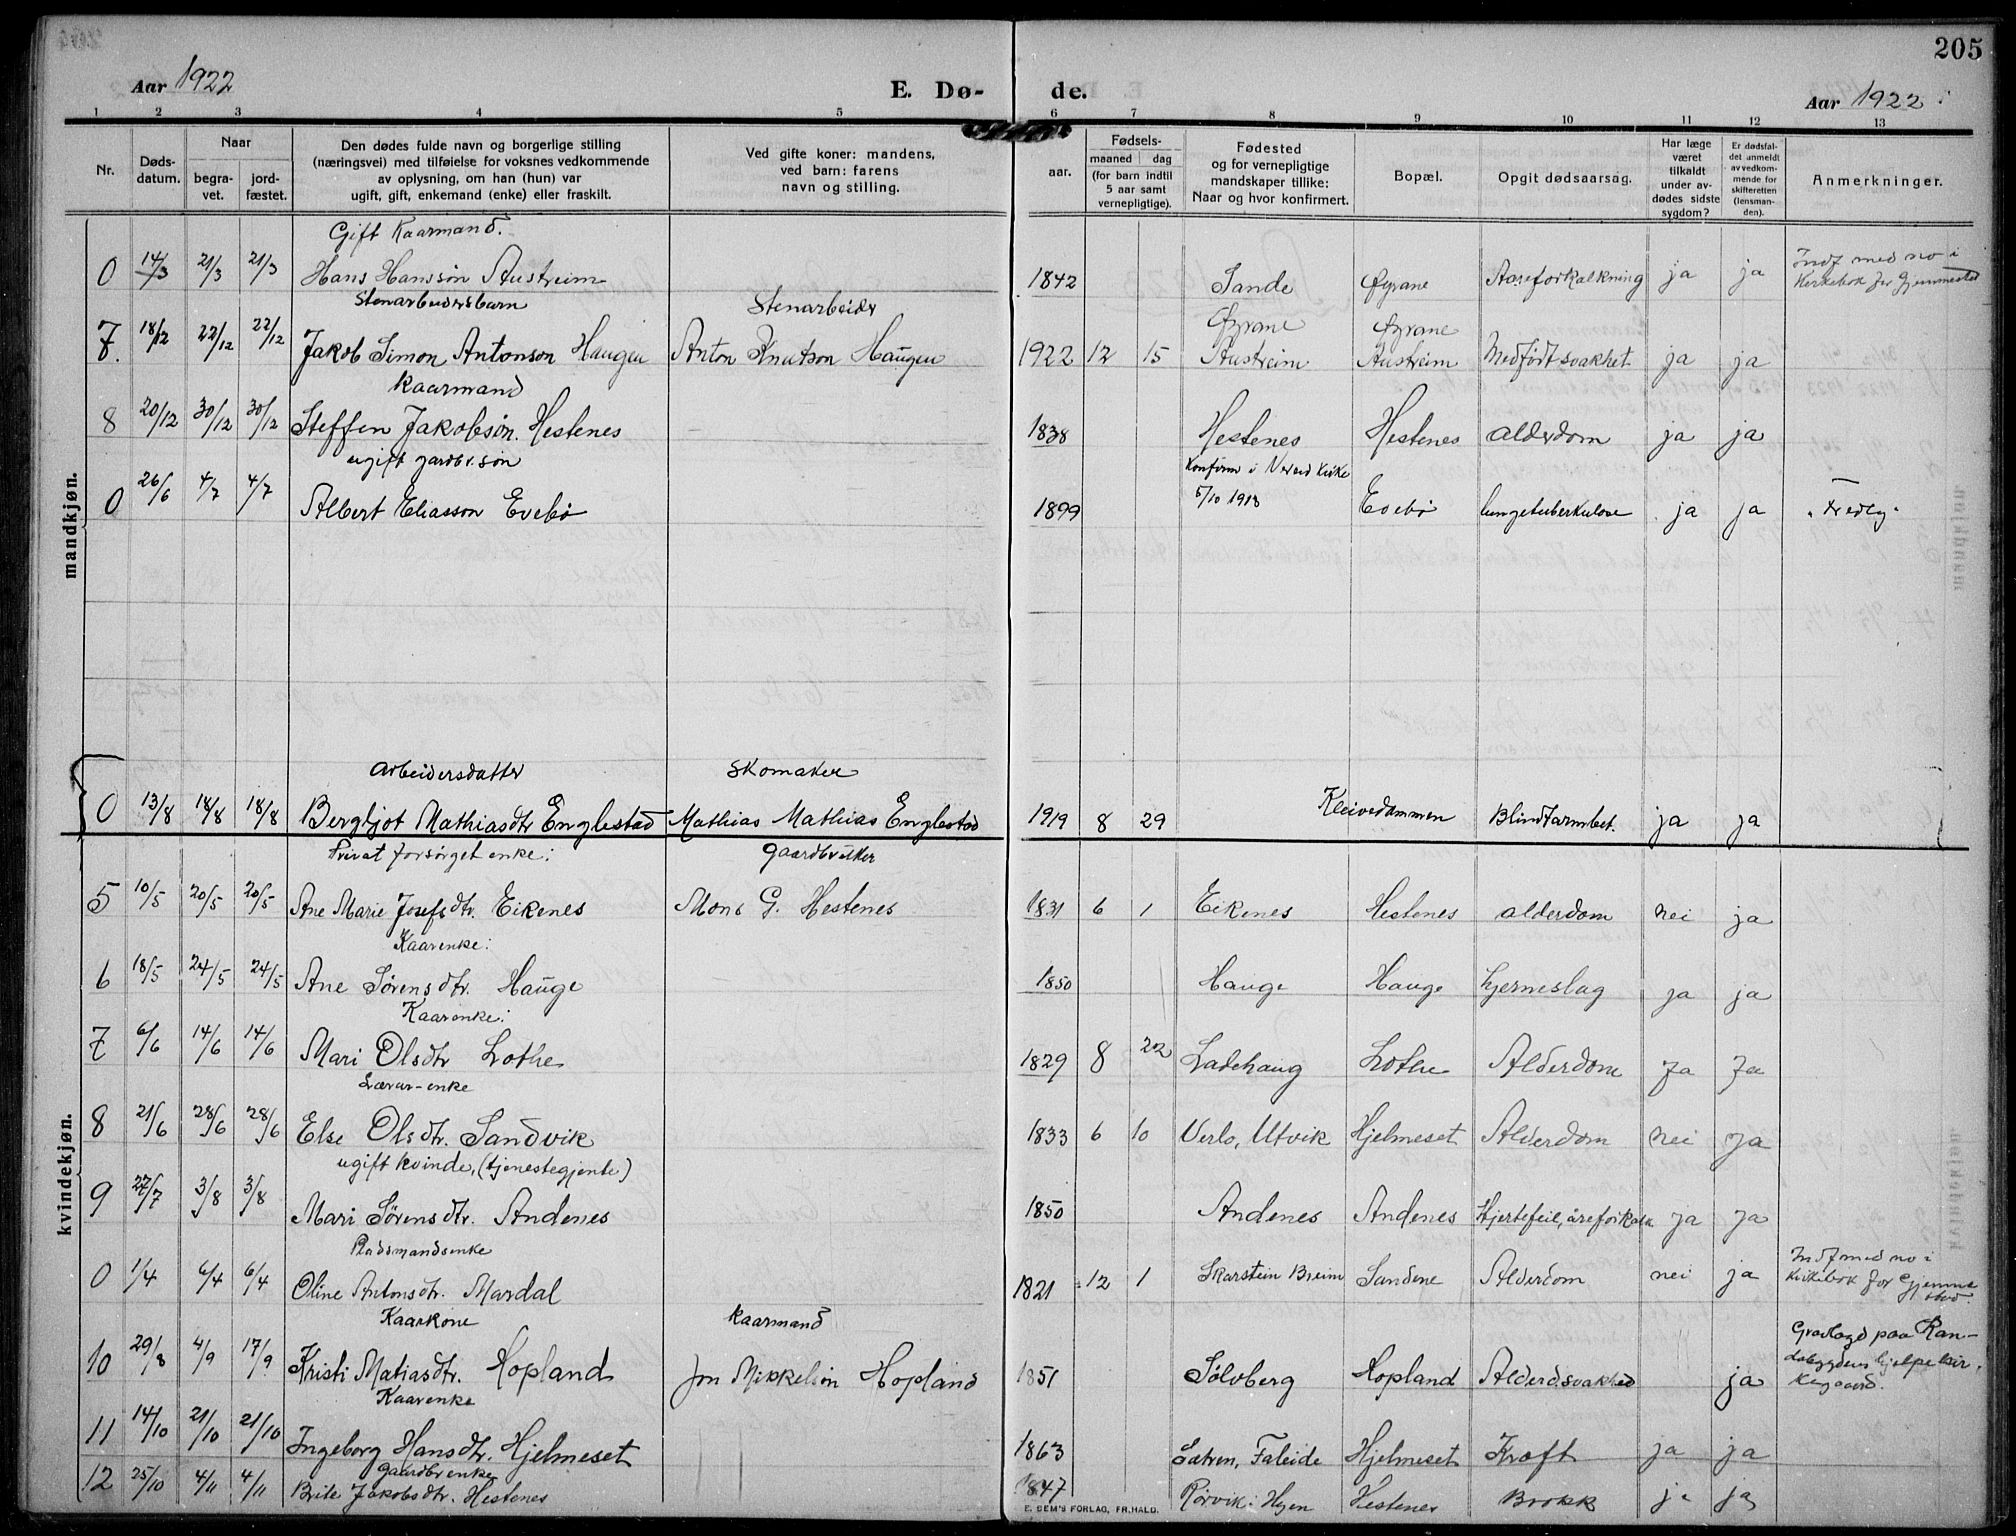 205
Aar 1922 E. Dø- de. Aar 1922
1 2 3 4 5 6 7 8 9 10 11 12 13
Nr.
Døds-
datum.
Naar
begra-
vet.
jord-
fæstet.
Den dødes fulde navn og borgerlige stilling
(næringsvei) med tilføielse for voksnes vedkommende
av oplysning, om han (hun) var
ugift, gift, enkemand (enke) eller fraskilt.
Ved gifte koner: mandens,
ved barn: farens
navn og stilling.
Fødsels-
aar.
maaned
dag
(for barn indtil
5 aar samt
vernepligtige).
Fødested
og for vernepligtige
mandskaper tillike:
Naar og hvor konfirmert.
Bopæl.
Opgit dødsaarsag.
Har læge
været
tilkaldt
under av-
dødes sidste
sygdom?
Er dødsfal-
det anmeldt
av vedkom-
mende for
skifteretten
(lensman-
den).
Anmerkninger.
mandkjøn.
Gift Kaarmand.
0 14/3 21/3 21/3 Hans Hanssøn Austreim 1842 Sande Øyrane Aareforkalkning ja ja Indf med no i
Kirkebok for Gjemmestad
Stenarbeidersbarn Stenarbeider Øyrane Øyrane
7. 18/12 22/12 22/12 Jakob Simon Antonson Haugen Anton Knutson Haugen 1922 12 15 Austreim Austreim Medfødt svakhet. ja ja
Kaarmand
8 20/12 30/12 30/12 Steffen Jakobsøn. Hestenes 1838 Hestenes Hestenes alderdom ja ja
ugift gardbr.søn Konfirm i Vereid Kirke
0 26/6 4/7 4/7 Albert Eliasson Evebø 1899 5/10 1913 Evebø lungetuberkulose ja ja "Fredly"
Arbeidersdatter Skomaker
0 13/8 18/8 18/8 Bergljot Mathiasdtr Englestad Mathias Mathias Englestad 1919 8 29 Kleivedammen Blindtarmbet. ja ja
kvindekjøn.
Privat forsørget enke: Gaardbruker
5 10/5 20/5 20/5 Ane Marie Josefsdtr. Eikenes Mons G. Hestenes 1831 6 1 Eikenes Hestenes alderdom nei ja
Kaarenke:
6 18/5 24/5 24/5 Ane Sørensdtr. Hauge 1850 Hauge Hauge hjerneslag ja ja
Kaarenke:
7 6/6 14/6 14/6 Mari Olsdtr Lothe 1829 8 22 Ladehaug Lothe Alderdom Ja Ja
Lærer-enke
8 21/6 28/6 28/6 Else Olsdtr. Sandvik 1833 6 10 Verlo, Utvik Hjelmeset Alderdom nei ja
ugift kvinde, (tjenestegjente)
9 27/7 3/8 3/8 Mari Sørensdtr. Andenes 1850 Andenes Andenes Hjertefeil, åreforkalk ja ja
Pladsmandsenke
0 1/4 6/4 6/4 Oline Antonsdtr. Mardal 1821 12 1 Skarstein Breim Sandene Alderdom nei ja Indf med no i
Kirkebok for Gjemme
stad.
Kaarkone Kaarmand
10 29/8 4/9 17/9 Kristi Matiasdtr. Hopland Jon Mikkelson Hopland 1851 Sølvberg Hopland Alderd.svakhed ja Gravlagd paa Ran-
dabygdens hjelpekir.
kegaard.
Kaarenke
11 14/10 21/10 21/10 Ingeborg Hansdtr. Hjelmeset 1863 Satren, Faleide Hjelmeset Kræft ja ja
Gaardbr enke
12 25/10 4/11 4/11 Brite Jakobsdtr. Hestenes 1847 Rørvik i Hyen Hestenes Brokk ja ja
E. SEM'S FORLAG, FR.HALD.